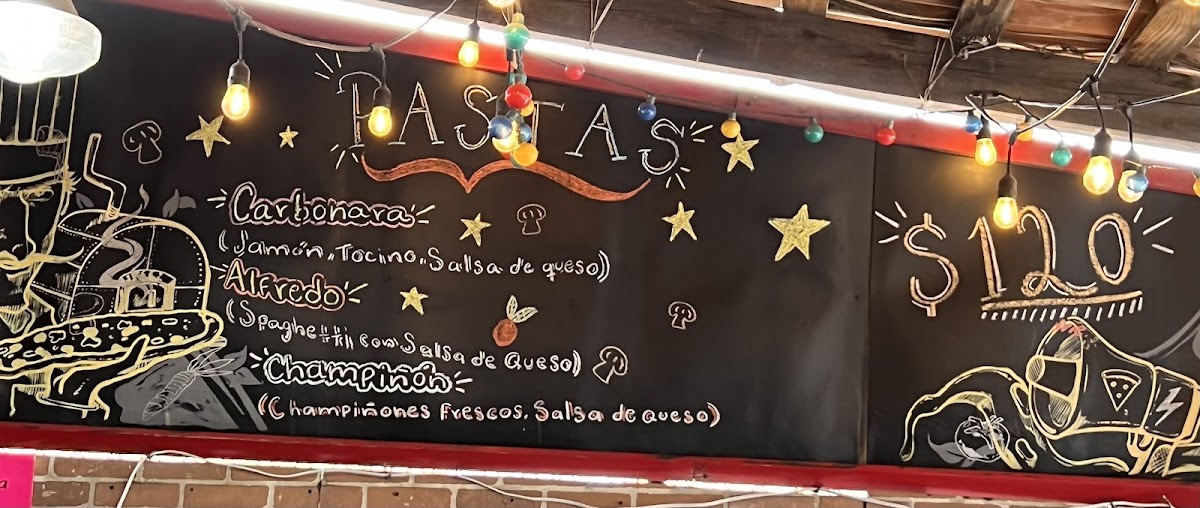 PASTAS
$120
Carbonara
(Jamón, Tocino, Salsa de queso)
Alfredo
(Spaghetti con Salsa de Queso)
Champiñón
(Champiñones Frescos, Salsa de queso)
a